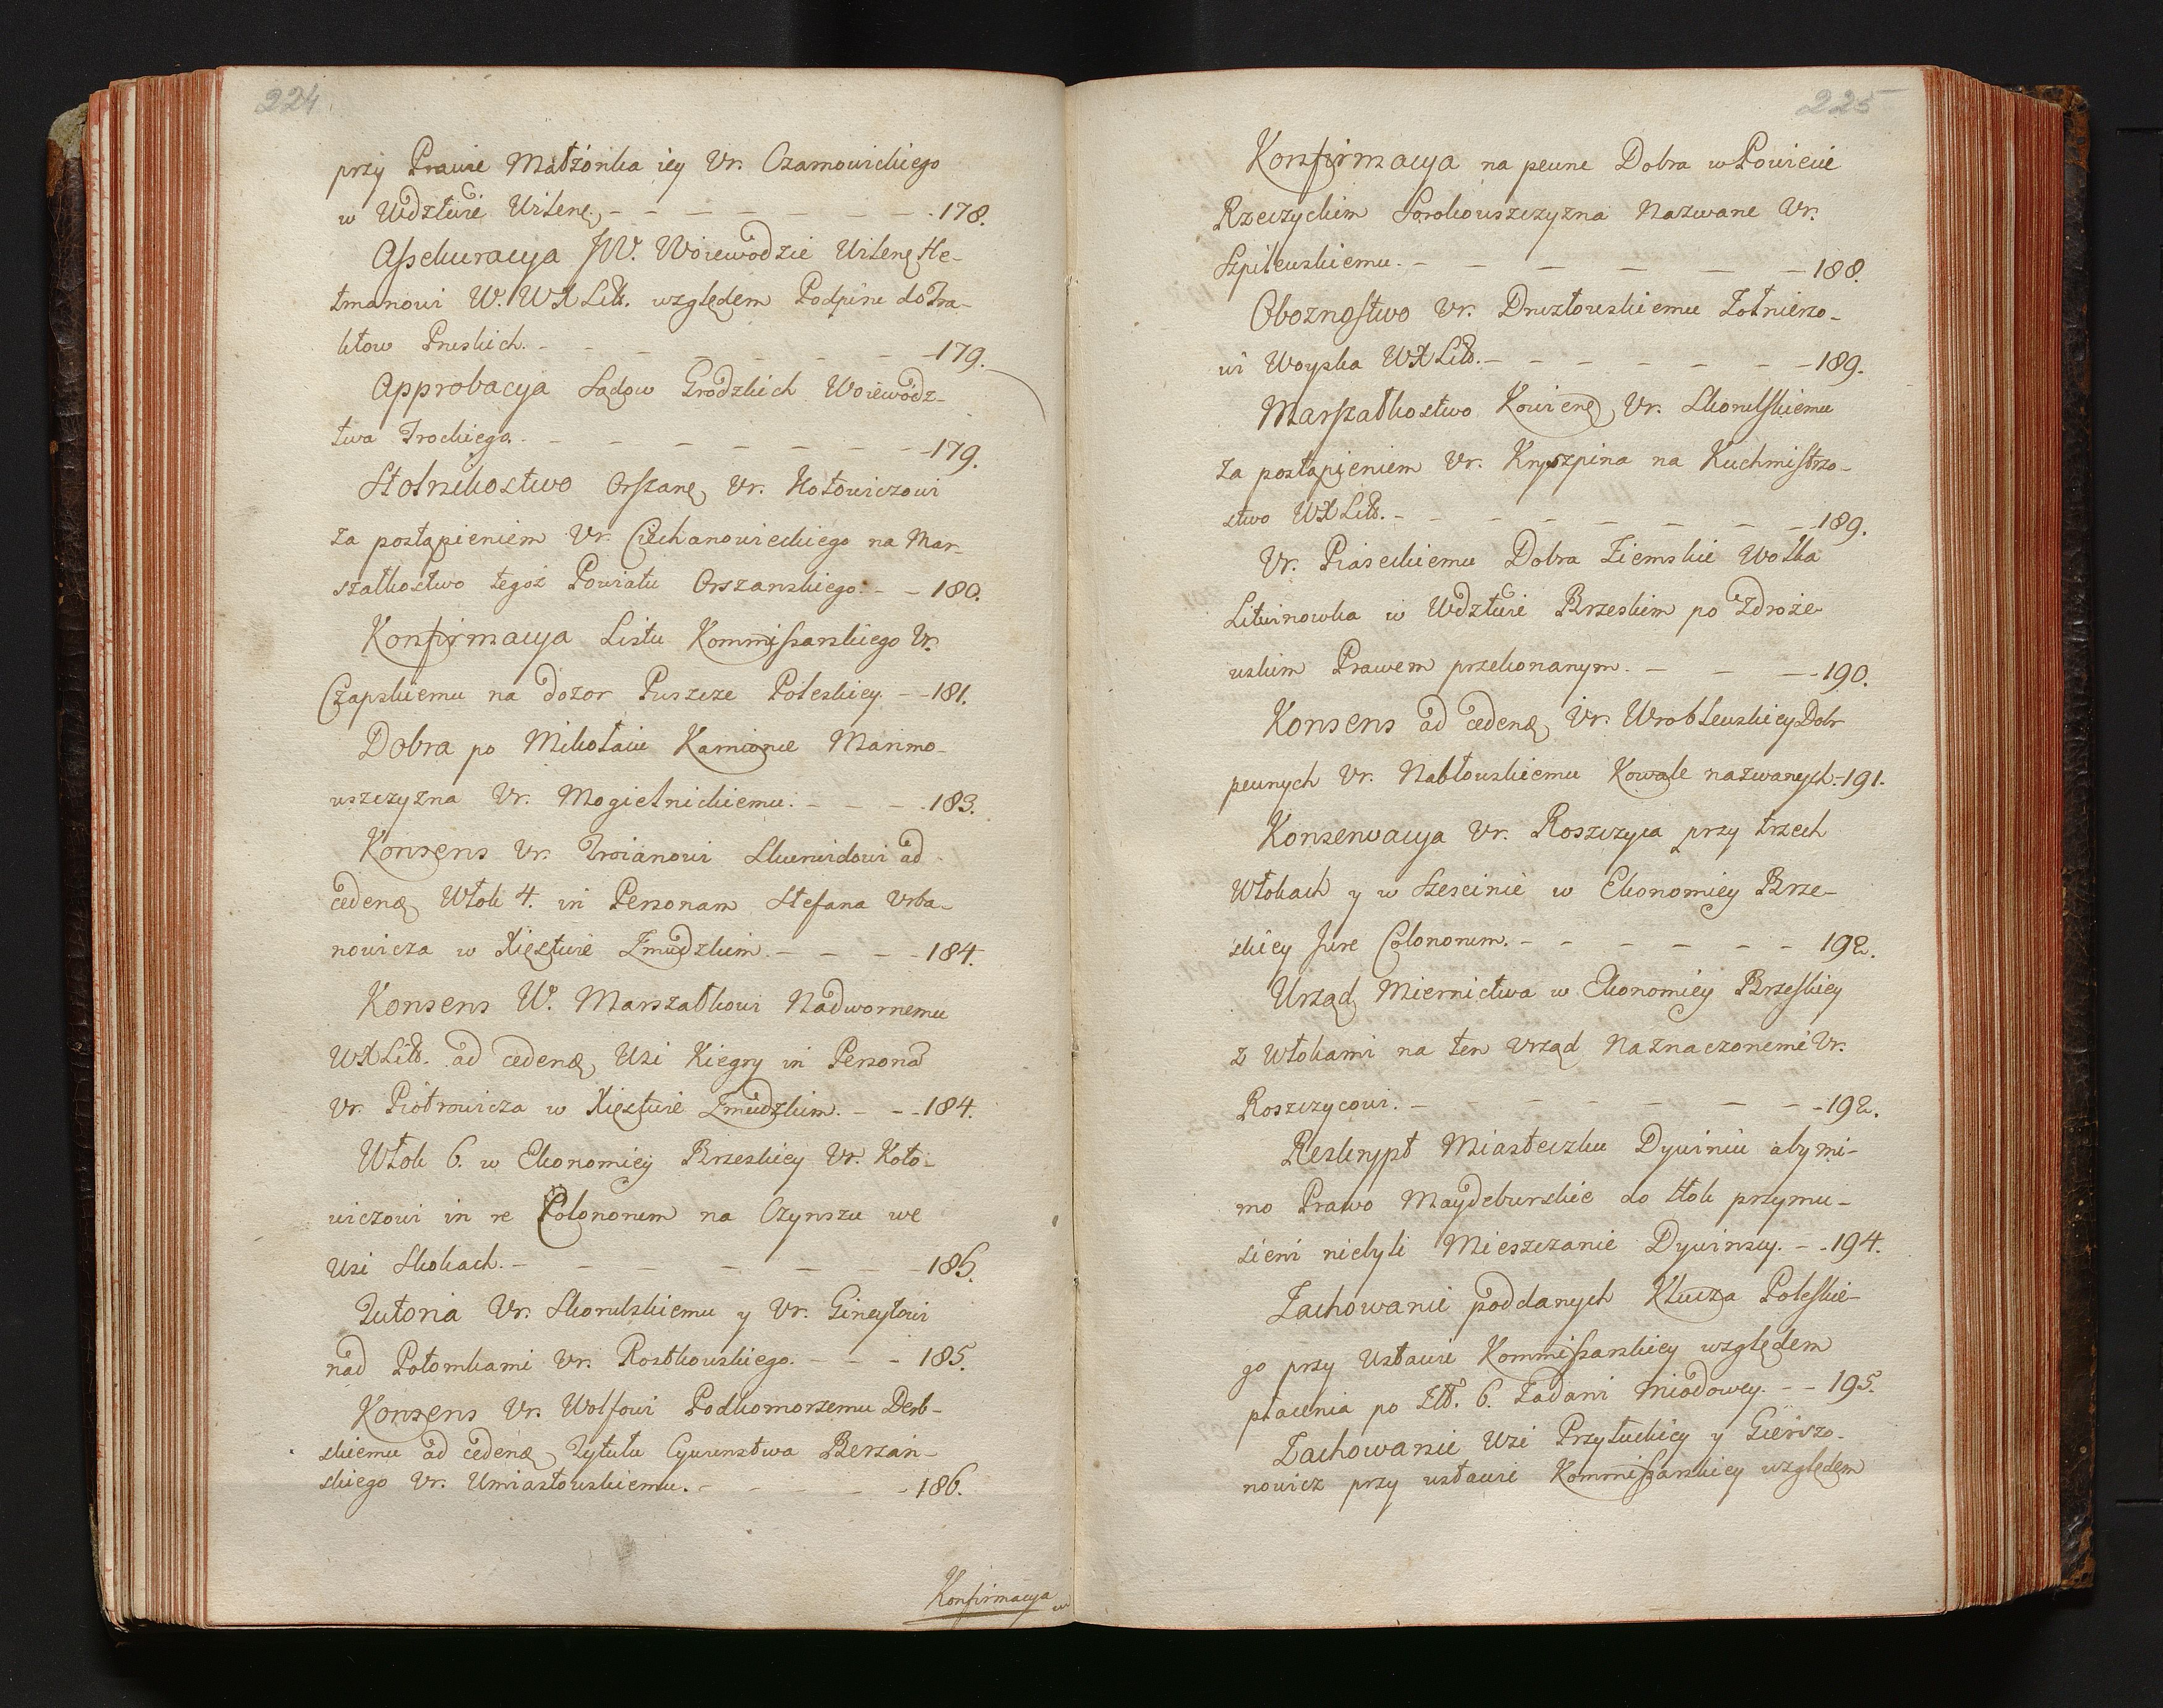 224
przy Prawie Małżonka iey Ur. Czarnowickiego
w Wdztwie Wilenę. - - - - - - - 178.
Assekuracya JW. Woiewodzie Wilenę He-
tmanowi W. WXLitt. względem Podpisu do Tra-
ktow Pruskich. - - - - - - - 179.
Approbacya Sądow Grodzkich Woiewodz-
twa Trockiego. - - - - - - 179.
Stolnikostwo Orszanę Ur. Hołowiczowi
za postąpieniem Ur. Ciechanowieckiego na Mar-
szałkostwo tegoż Powiatu Orszanskiego. - - 180.
Konfirmacya Listu Kommissarskiego Ur.
Czapskiemu na dozor Puszcze Poleskiey. - - 181.
Dobra po Mikołaiu Kamionce Marimo-
wszczyzna Ur. Mogielnickiemu. - - - 183.
Konsens Ur. Troianowi Skumidowi ad
cedenđ Włok 4. in Personam Stefana Urba-
nowicza w Xięstwie Zmudzkim. - - - 184.
Konsens W. Marszałkowi Nadwornemu
WXLitt. ad cedenđ Wsi Kiegry in Personã
Ur. Piotrowicza w Xięstwie Zmudzkim. - - - 184.
Włok 6. w Ekonomiey Brzeskiey Ur. Koto-
wiczowi in re Colonorum na Czynszu we
Wsi Skokach. - - - - - - 185.
Tutoria Ur. Skorulskiemu y Ur. Gineytowi
nad Potomkami Ur. Rostkowskiego. - - - 185.
Konsens Ur. Wolfowi Podkomorzemu Derb-
skiemu ad cedenđ Tytułu Cywunstwa Berżan-
skiego Ur. Umiastowskiemu. - - - - - 186.
Konfirmacya
225
Konfirmacya na pewne Dobra w Powiecie
Rzeczyckim Sorokowszczyzna Nazwane Ur.
Szpilewskiemu. - - - - - - 188.
Oboznostwo Ur. Druztowskiemu Zołnierzo-
wi Woyska WXLitt. - - - - - - 189.
Marszałkostwo Kowienę Ur. Skorulskiemu
za postąpieniem Ur. Kryszpina na Kuchmistrzo-
stwo WXLitt. - - - - - - - 189.
Ur. Piaseckiemu Dobra Ziemskie Wolka
Litwinowka w Wdztwie Brzeskim po Zdroże-
wskim Prawem przekonanym. - - - 190.
Konsens ad cedenđ Ur. Wroblewskiey Dobr
pewnych Ur. Nabłowskiemu Kowale nazwanych. - 191.
Konserwacya Ur. Roszczyca przy trzech
Włokach y w Szescinie w Ekonomiey Brze-
skiey Jure Colonorum. - - - - - - 192.
Urząd Miernictwa w Ekonomiey Brzeskiey
z Włokami na ten Urząd Naznaczonemi Ur.
Roszczycowi. - - - - - - - 192.
Reskrypt Miasteczku Dywiniu aby mi-
mo Prawo Maydeburskie do tłok przymu-
sieni niebyli Mieszczanie Dywinscy. - - 194.
Zachowanie poddanych Klucza Poleskie-
go przy Ustawie Kommissarskiey względem
płacenia po Zlt. 6. Zadani miodowey. - - 195.
Zachowanie Wsi Przyłuckiey y Gierszo-
nowicz przy ustawie Kommissarskiey względem